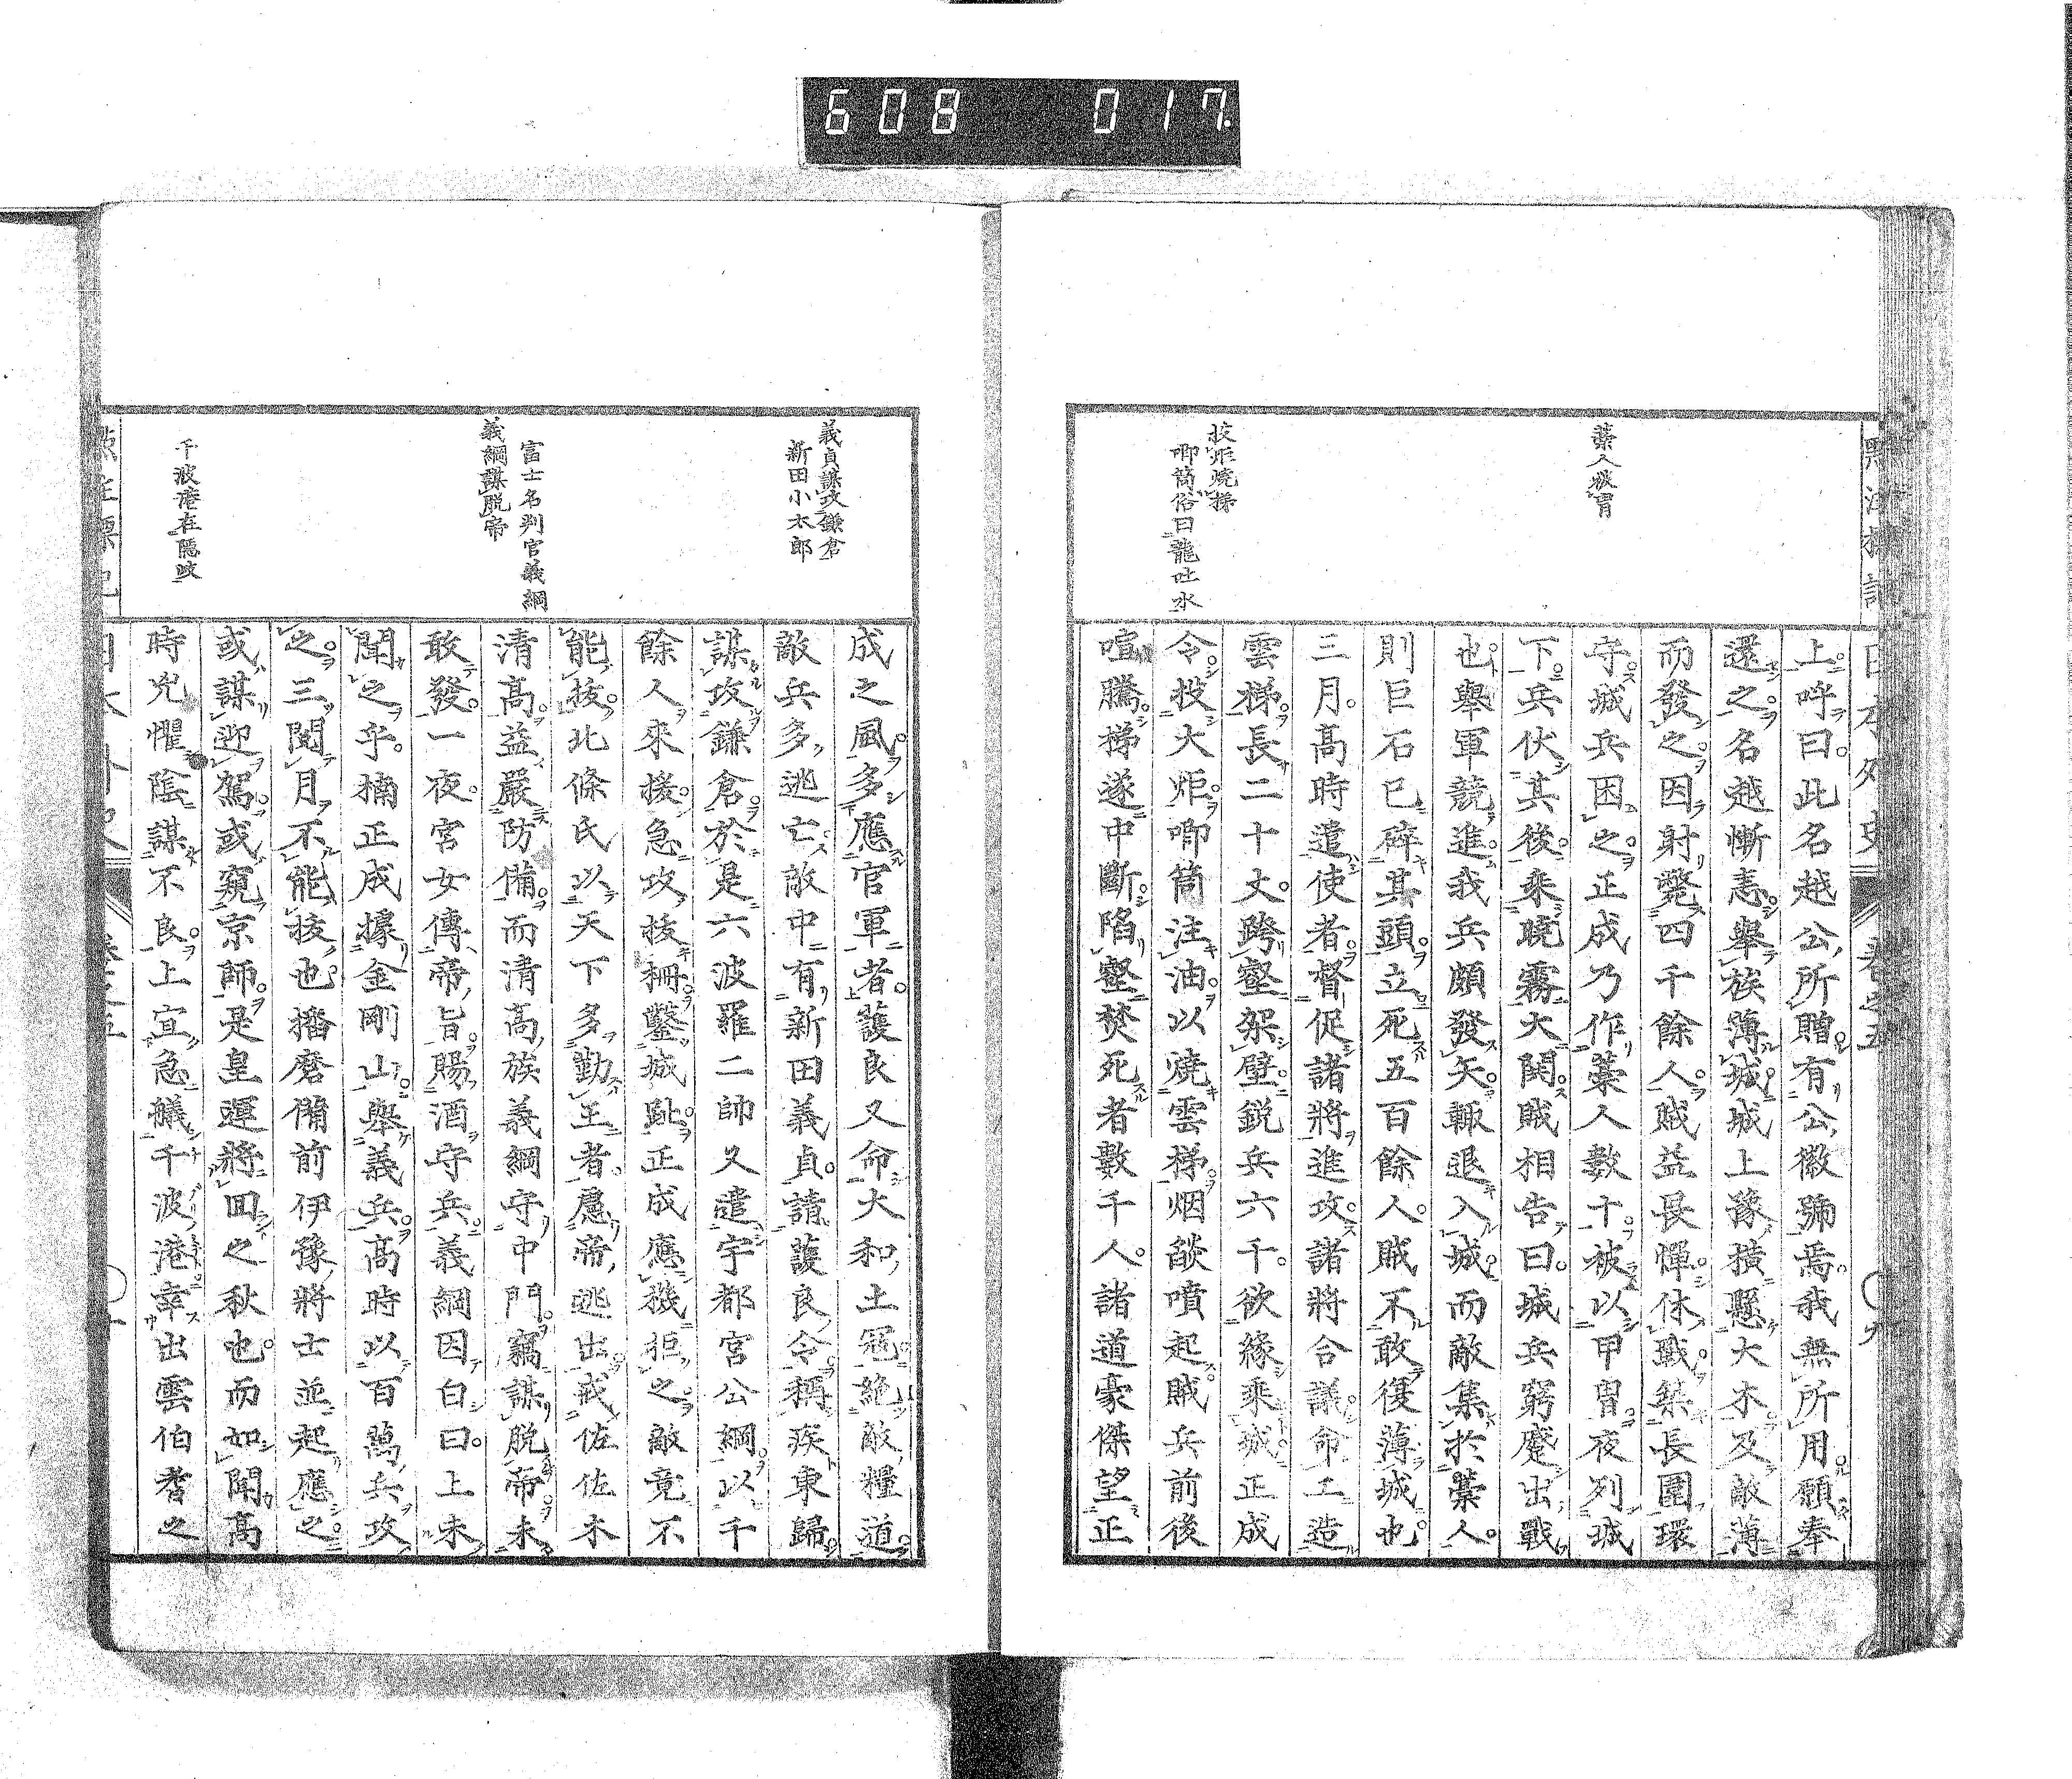 608 017.
日本外史
卷之五
九
藁人被冑
投炬燒梯
喞筒俗曰龍吐水
上呼曰此名越公所贈有公徽號焉我無所用願奉
還之名越慚恚擧族薄城城上豫橫懸大木及敵薄
而發之因射斃四千餘人賊益畏憚休戰築長圍環
守城兵因之正成乃作藁人數十被以甲冑夜列城
下兵伏其後乘曉霧大鬨賊相告曰城兵窮蹙出戰
也擧軍競進我兵頗發矢輒退入城而敵集於藁人
則巨石已碎其頭立死五百餘人賊不敢復薄城也
三月高時遣使者督促諸將進攻諸將合議命工造
雲梯長二十丈跨壑架壁鋭兵六千欲緣乘城正成
令投大炬喞筒注油以燒雲梯烟燄噴起賊兵前後
喧騰梯遂中斷陷壑焚死者數千人諸道豪傑望正
義貞謀攻鎌倉
新田小太郎
富士名判官義綱
義綱謀脱帝
千波港在隱岐
成之風多應官軍者護良又命大和土寇絶敵糧道
敵兵多逃亡敵中有新田義貞請護良令稱疾東歸
謀攻鎌倉於是六波羅二帥又遣宇都宮公綱以千
餘人來援急攻拔柵鑿城趾正成應機拒之敵竟不
能拔北條氏以天下多勤王者慮帝逃出戒佐佐木
清高益嚴防備而清高族義綱守中門竊謀脱帝未
敢發一夜宮女傳帝旨賜酒守兵義綱因白曰上未
聞之乎楠正成據金剛山擧義兵高時以百萬兵攻
之三閲月不能拔也播磨備前伊豫將士並起應之
或謀迎駕或窺京師是皇運將回之秋也而如聞高
時兇懼陰謀不良上宜急艤千波港幸出雲伯耆之